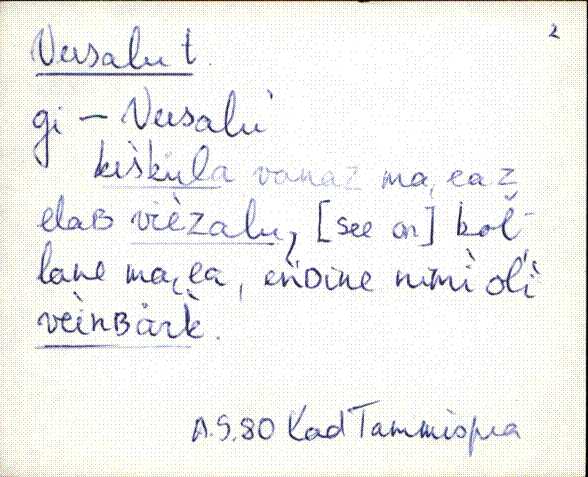 2
Versalu t.
gi – Versalu
kiškula vanaz ma,eaz
elaB vièzalu, [see on] boĺ-
lane ma,ea, eǹDine nimi oĺi
veinBärk.
A.S. 80 Kad Tammispea